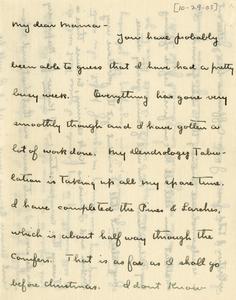 [10-29-05]
My dear Mama -
You have probably
been able to guess that I have had a pretty
busy week. Everything has gone very
smoothly though and I have gotten a
lot of work done. My Dendrology Tabu-
lation is taking up all my spare time.
I have completed the Pines & Larches,
which is about half way through the
Conifers. That is as far as I shall go
before Christmas. I dont know